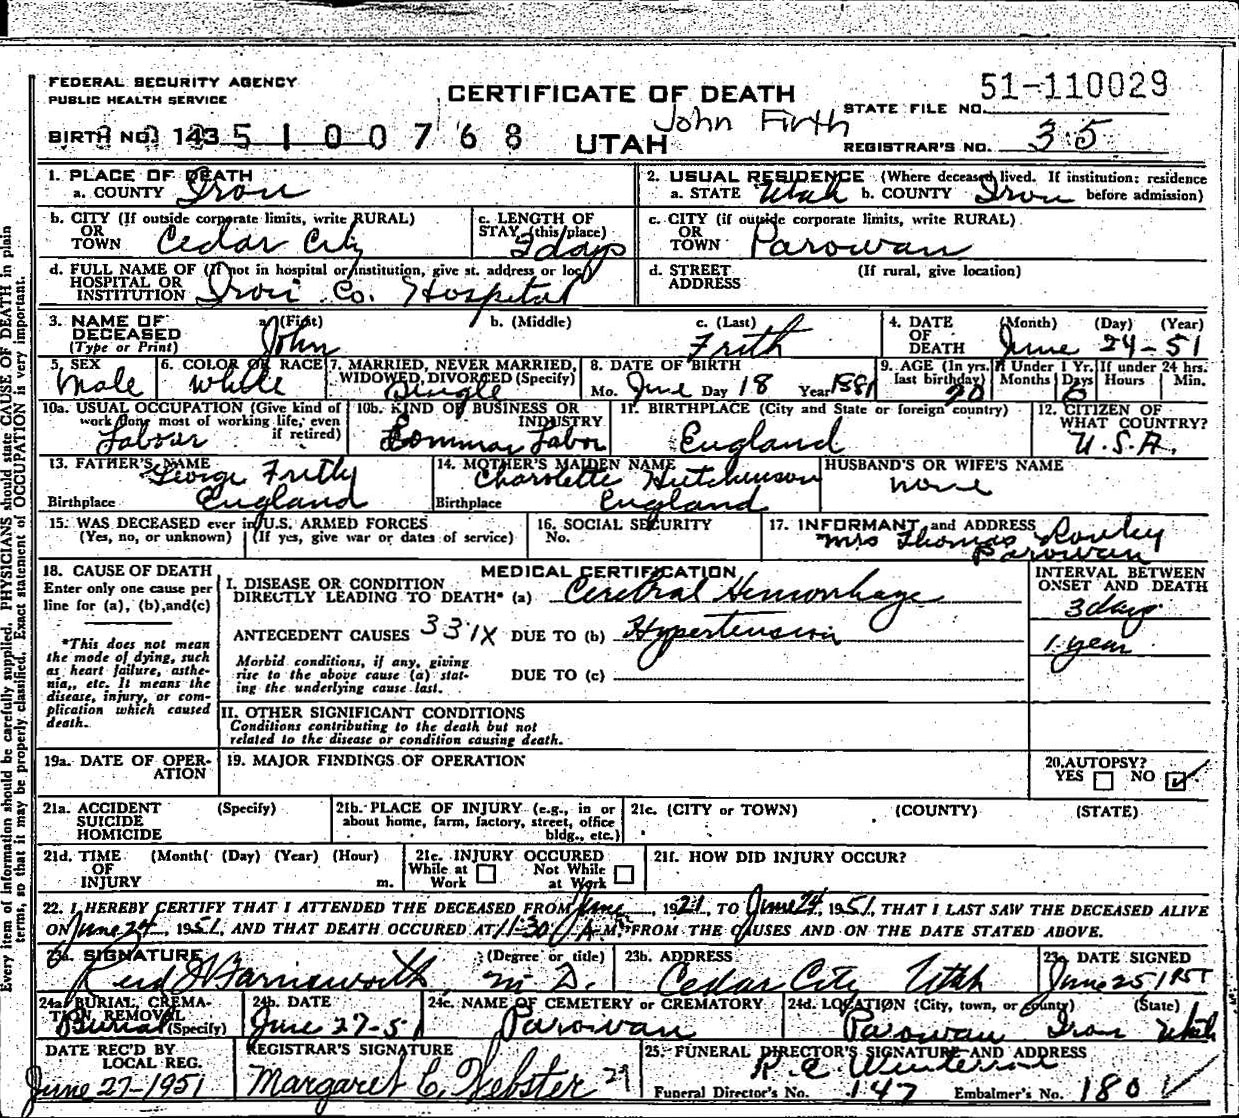 FEDERAL SECURITY AGENCY
PUBLIC HEALTH SERVICE
CERTIFICATE OF DEATH
STATE FILE NO. 51-110029
John Firth
BIRTH NO. 143 5100768
UTAH
REGISTRAR'S NO. 35
1. PLACE OF DEATH
a. COUNTY Iron
2. USUAL RESIDENCE (Where deceased lived. If institution: residence before admission)
a. STATE Utah b. COUNTY Iron
b. CITY (If outside corporate limits, write RURAL) OR TOWN Cedar City
c. LENGTH OF STAY (this place) 2 days
c. CITY (if outside corporate limits, write RURAL) OR TOWN Parowan
d. FULL NAME OF (If not in hospital or institution, give st. address or loc.) HOSPITAL OR INSTITUTION Iron Co. Hospital
d. STREET ADDRESS (If rural, give location)
3. NAME OF DECEASED (Type or Print)
a. (First) John
b. (Middle)
c. (Last) Frith
4. DATE OF DEATH (Month) (Day) (Year) June 24-51
5. SEX Male
6. COLOR OR RACE White
7. MARRIED, NEVER MARRIED, WIDOWED, DIVORCED (Specify) Single
8. DATE OF BIRTH Mo. June Day 18 Year 1881
9. AGE (In yrs. last birthday) 70
If Under 1 Yr. Months Days 6
If under 24 hrs. Hours Min.
10a. USUAL OCCUPATION (Give kind of work done most of working life, even if retired) Labour
10b. KIND OF BUSINESS OR INDUSTRY Common Labor
11. BIRTHPLACE (City and State or foreign country) England
12. CITIZEN OF WHAT COUNTRY? U.S.A.
13. FATHER'S NAME George Frith
Birthplace England
14. MOTHER'S MAIDEN NAME Charolette Hutchinson
Birthplace England
HUSBAND'S OR WIFE'S NAME none
15. WAS DECEASED ever in U.S. ARMED FORCES
(Yes, no, or unknown) (If yes, give war or dates of service)
16. SOCIAL SECURITY No.
17. INFORMANT and ADDRESS Mrs Thomas Rowley
Parowan
18. CAUSE OF DEATH
Enter only one cause per line for (a), (b), and (c)
*This does not mean the mode of dying, such as heart failure, asthenia,, etc. It means the disease, injury, or complication which caused death.
MEDICAL CERTIFICATION
INTERVAL BETWEEN ONSET AND DEATH
I. DISEASE OR CONDITION DIRECTLY LEADING TO DEATH* (a) Cerebral Hemorrhage
3 days
ANTECEDENT CAUSES 331X DUE TO (b) Hypertension
1 year
Morbid conditions, if any, giving rise to the above cause (a) stating the underlying cause last.
DUE TO (c)
II. OTHER SIGNIFICANT CONDITIONS
Conditions contributing to the death but not related to the disease or condition causing death.
19a. DATE OF OPERATION
19. MAJOR FINDINGS OF OPERATION
20. AUTOPSY?
YES NO ✓
21a. ACCIDENT SUICIDE HOMICIDE (Specify)
21b. PLACE OF INJURY (e.g., in or about home, farm, factory, street, office bldg., etc.)
21c. (CITY or TOWN) (COUNTY) (STATE)
21d. TIME OF INJURY (Month) (Day) (Year) (Hour) m.
21e. INJURY OCCURED While at Work Not While at Work
21f. HOW DID INJURY OCCUR?
22. I HEREBY CERTIFY THAT I ATTENDED THE DECEASED FROM June, 1921, TO June 24, 1951, THAT I LAST SAW THE DECEASED ALIVE
ON June 24, 1951, AND THAT DEATH OCCURED AT 11:30 A.M. FROM THE CAUSES AND ON THE DATE STATED ABOVE.
23a. SIGNATURE (Degree or title) Farnsworth M.D.
23b. ADDRESS Cedar City Utah
23c. DATE SIGNED June 25 1951
24a. BURIAL, CREMATION, REMOVAL (Specify) Burial
24b. DATE June 27-51
24c. NAME OF CEMETERY or CREMATORY Parowan
24d. LOCATION (City, town, or county) (State) Parowan Iron Utah
DATE REC'D BY LOCAL REG. June 27-1951
REGISTRAR'S SIGNATURE Margaret C. Webster 29
25. FUNERAL DIRECTOR'S SIGNATURE AND ADDRESS
Funeral Director's No. 147 Embalmer's No. 180
Every item of information should be carefully supplied. PHYSICIANS should state CAUSE OF DEATH in plain
terms, so that it may be properly classified. Exact statement of OCCUPATION is very important.